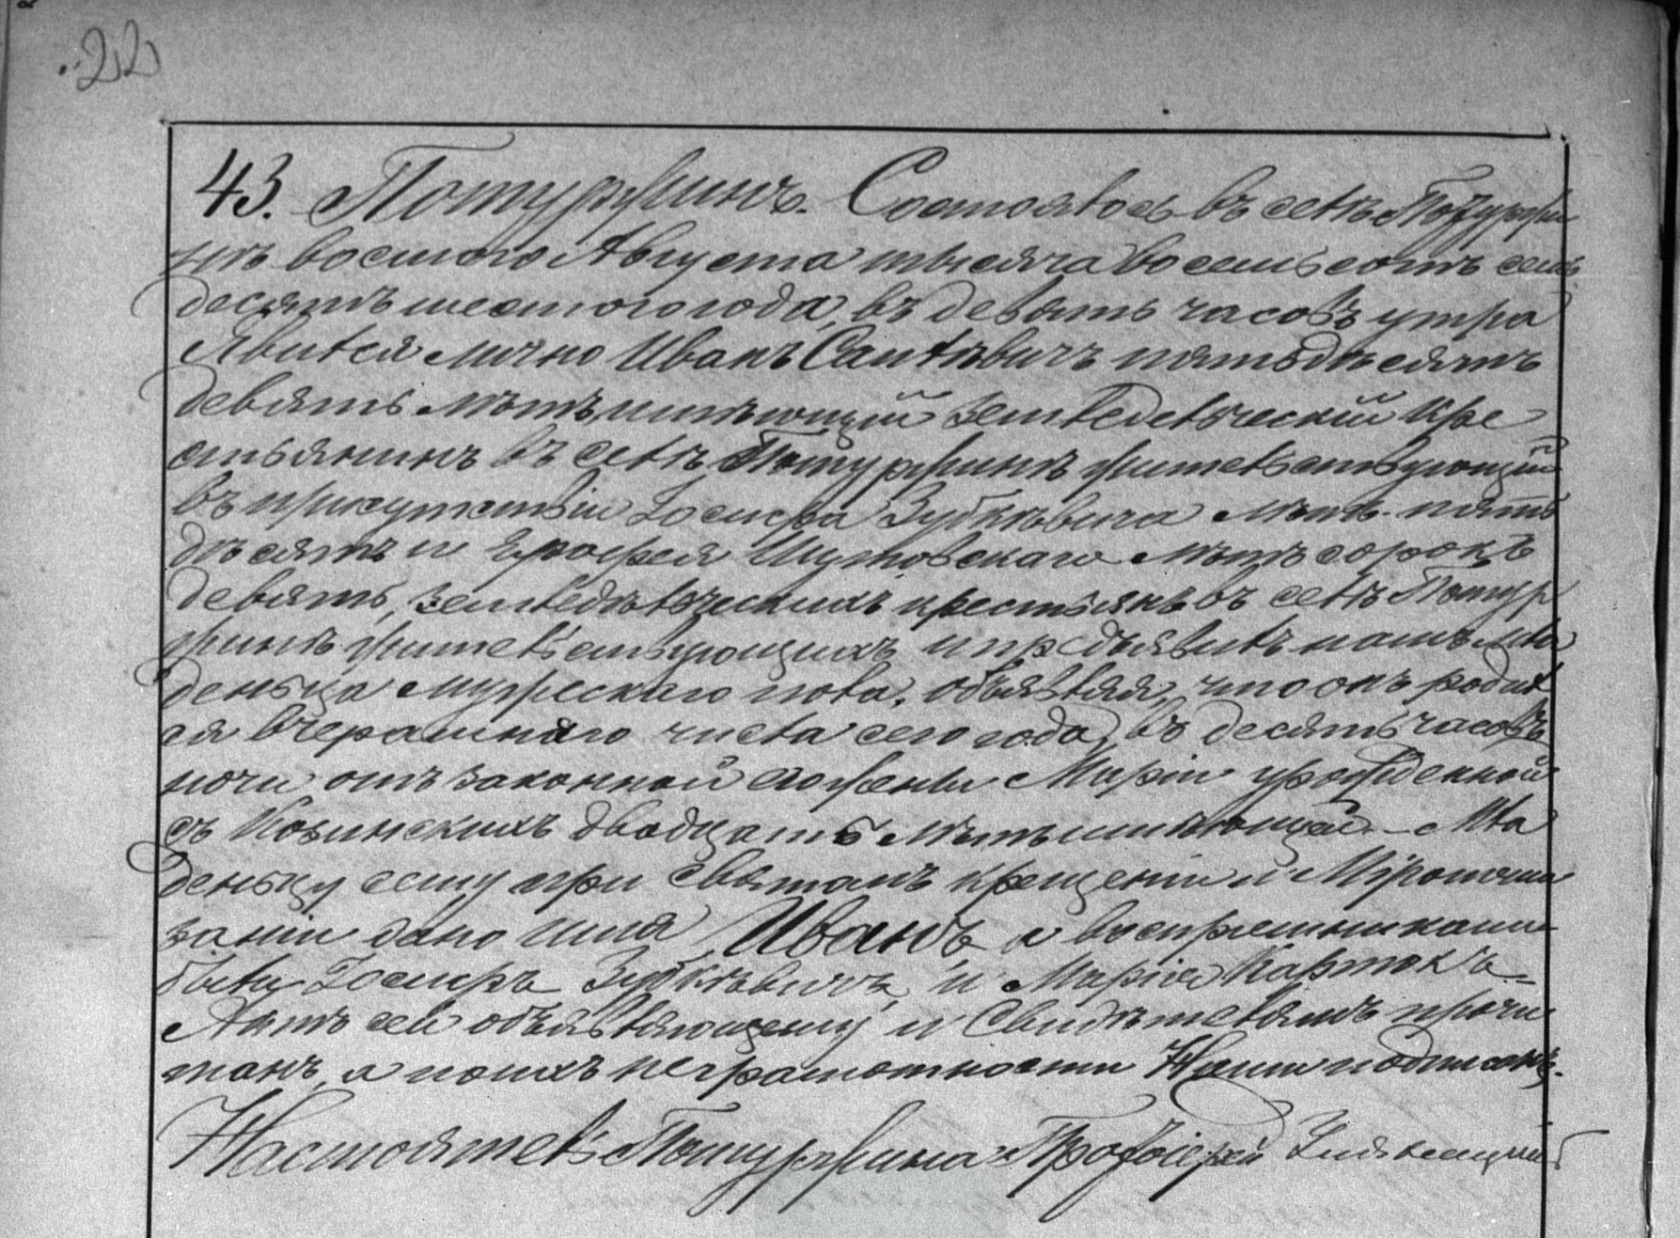 22
43. Потуржинъ. Состоялось въ селѣ Потуржи
нѣ восьмого Августа тысяча восемьсотъ семь
десятъ шестого года, въ девять часовъ утра
Явился лично Иванъ пятьдѣсятъ
девять лѣтъ имѣющій земледельческій кре
стьянинъ въ селѣ Потуржинѣ жительствующій
въ присутствіи Іосифа Зубкѣвича лѣтъ пять
дѣсятъ и Ерофея Шутовскаго лѣтъ сорокъ
девять, земледѣльческихъ крестьянъ въ селѣ Потур
жинѣ жительствующихъ и предъявилъ намъ мла
деньца мужескаго пола, объявляя, что онъ родил
ся вчерашняго числа сего года, въ десять часовъ
ночи отъ законной его жены Маріи урожденной
съ двадцать лѣтъ имѣющей. – Мла
деньцу сему при Святомъ крещеніи и Мѵропома
заніи дано имя Иванъ, а воспріемниками
были Іосифъ Зубкѣвичъ, и Марія
Актъ сей объявляющему и Свидѣтелямъ прочи
танъ, а по ихъ неграмотности Нами подписанъ.
Настоятель Потуржина Протоіерей